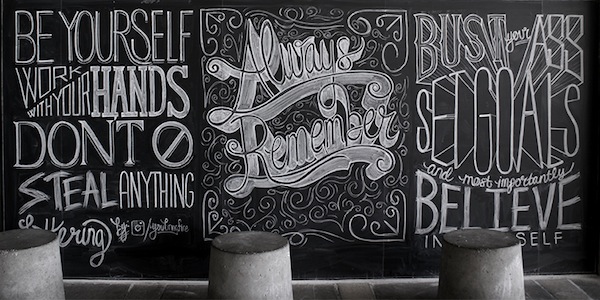 BE YOURSELF
WORK
WITH YOUR HANDS
DON'T
STEAL ANYTHING
Lettering by:
Always
Remember
BUST your ASS
SET GOALS
and most importantly
BELIEVE
IN YOURSELF